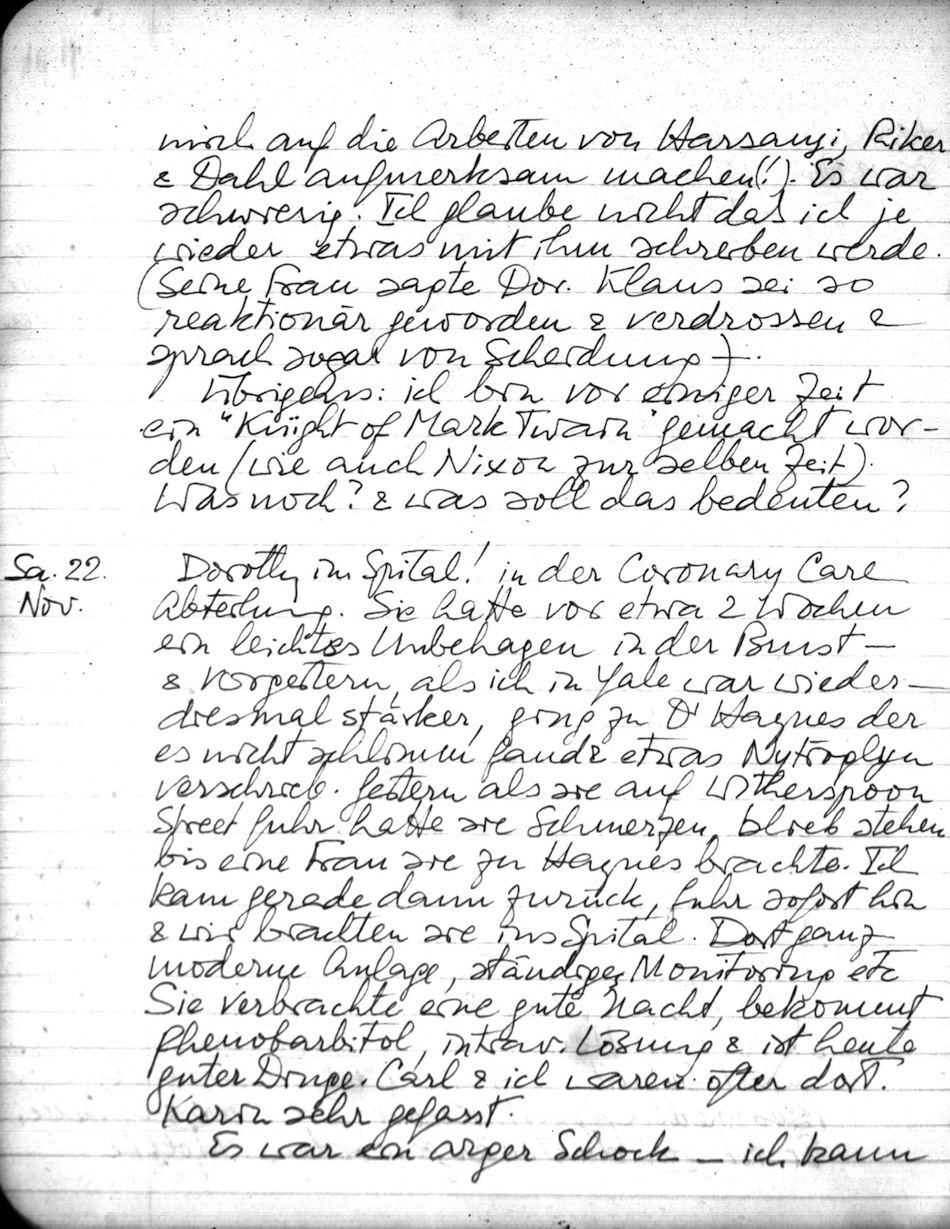 mich auf die Arbeiten von Harsanyi, Riker
& Dahl aufmerksam machen(!). Es war
schwierig. Ich glaube nicht das ich je
wieder etwas mit ihm schreiben werde.
(Seine Frau sagte Dor. Klaus sei so
reaktionär geworden & verdrossen &
sprach sogar von Scheidung).
Übrigens: ich bin vor einiger Zeit
ein "Knight of Mark Twain" gemacht wor-
den (wie auch Nixon zur selben Zeit).
Was noch? & was soll das bedeuten?
Sa. 22. Nov.
Dorothy im Spital! in der Coronary Care
Abteilung. Sie hatte vor etwa 2 Wochen
ein leichtes Unbehagen in der Brust –
& vorgestern, als ich in Yale war wieder –
diesmal stärker, ging zu Dr Haynes der
es nicht schlimm fand & etwas Nytroglyn
verschrieb. Gestern als sie auf Witherspoon
Street fuhr hatte sie Schmerzen, blieb stehen
bis eine Frau sie zu Haynes brachte. Ich
kam gerade dann zurück, fuhr sofort hin
& wir brachten sie ins Spital. Dort ganz
moderne Anlage, ständiges Monitoring etc
Sie verbrachte eine gute Nacht, bekommt
Phenobarbitol, intrav. Lösung & ist heute
guter Dinge. Carl & ich waren öfter dort.
Karin sehr gefasst.
Es war ein arger Schock – ich kann